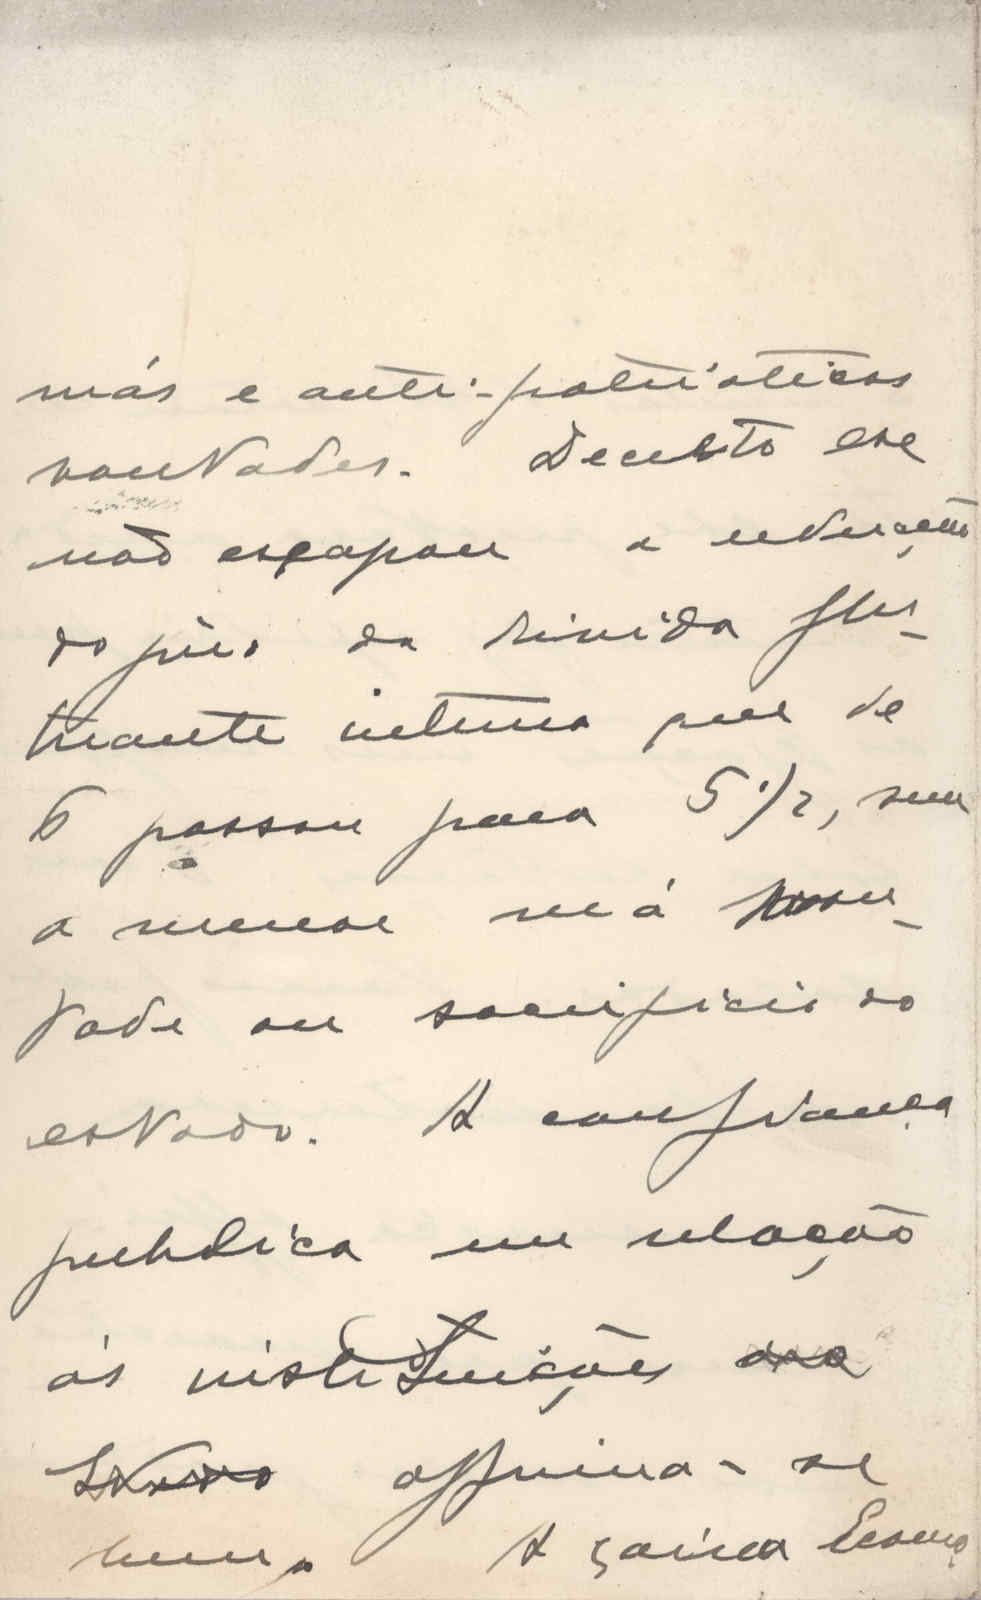 más e anti-patrioticas
vontades. Decerto ese
não escapou a reducção
do juro da divida flu-
tuante interna que de
6 passou para 5 1/2, sem
a menor má von-
tade ou sacrificio do
estado. A confiança
publica em relação
ás instituições
affirma-se
bem. A Caixa Econo